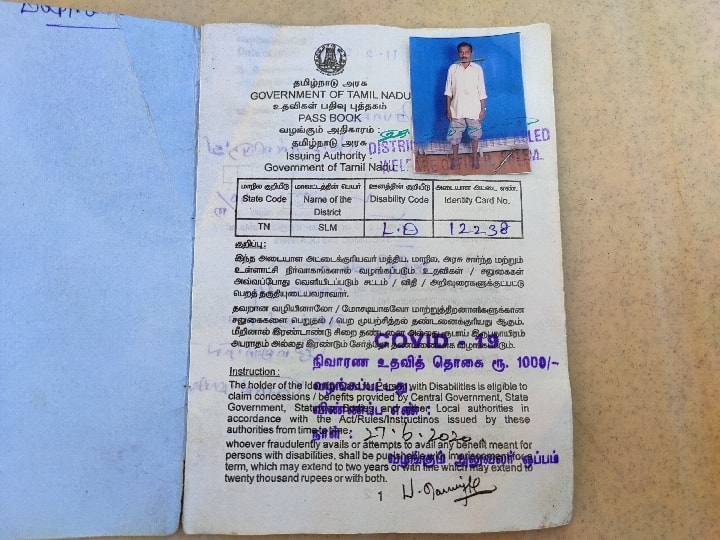 தமிழ்நாடு அரசு
GOVERNMENT OF TAMIL NADU
உதவிகள் பதிவு புத்தகம்
PASS BOOK
வழங்கும் அதிகாரம் :
தமிழ்நாடு அரசு
Issuing Authority :
Government of Tamil Nadu
DISTRICT ABLED
WELFARE
மாநில குறியீடு State Code
மாவட்டத்தின் பெயர் Name of the District
ஊனத்தின் குறியீடு Disability Code
அடையாள அட்டை எண். Identity Card No.
TN SLM L.D 12238
குறிப்பு :
இந்த அடையாள அட்டைக்குரியவர் மத்திய, மாநில, அரசு சார்ந்த மற்றும்
உள்ளாட்சி நிர்வாகங்களால் வழங்கப்படும் உதவிகள் / சலுகைகள்
அவ்வப்போது வெளியிடப்படும் சட்டம் / விதி / அறிவுரைகளுக்குட்பட்டு
பெறத் தகுதியுடையவராவார்.
தவறான வழியினாலோ / மோசடியாகவோ மாற்றுத்திறனாளிகளுக்கான
சலுகைகளை பெறுதல் / பெற முயற்சித்தல் தண்டனைக்குரியது ஆகும்.
மீறினால் இரண்டாண்டு சிறை தண்டனை அல்லது ரூபாய் இருபதாயிரம்
அபராதம் அல்லது இரண்டும் சேர்த்தே தண்டனையாக வழங்கப்படும்.
COVID - 19
நிவாரண உதவித் தொகை ரூ. 1000/-
வழங்கப்பட்டது
விண்ணப்ப எண் :
நாள் : 27.6.2020
வழங்கும் அலுவலர் ஒப்பம்
Instruction :
The holder of the Identity Card for Person with Disabilities is eligible to
claim concessions / benefits provided by Central Government, State
Government, State Bodies and other Local authorities in
accordance with the Act/Rules/Instructinos issued by these
authorities from time to time.
whoever fraudulently avails or attempts to avail any benefit meant for
persons with disabilities, shall be punishable with imprisonment for a
term, which may extend to two years or with fine which may extend to
twenty thousand rupees or with both.
1